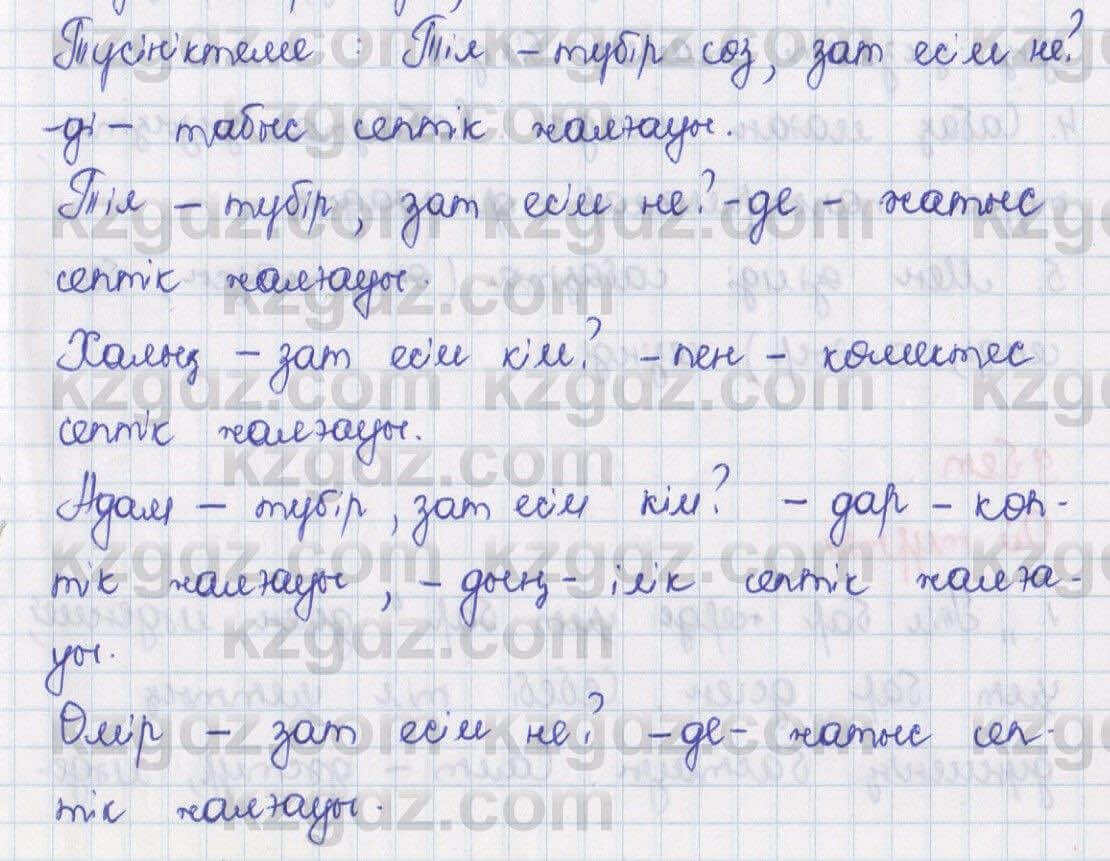 Түсініктеме : Тіл – түбір сөз, зат есім не?
-ді – табыс септік жалғауы.
Тіл – түбір, зат есім не? -де – жатыс
септік жалғауы.
Халық – зат есім кім? – пен – көмектес
септік жалғауы.
Адам – түбір, зат есім кім? – дар – көп-
тік жалғауы, – дың – ілік септік жалға-
уы.
Өмір – зат есім не? – де – жатыс сеп-
тік жалғауы.
kzgdz.com